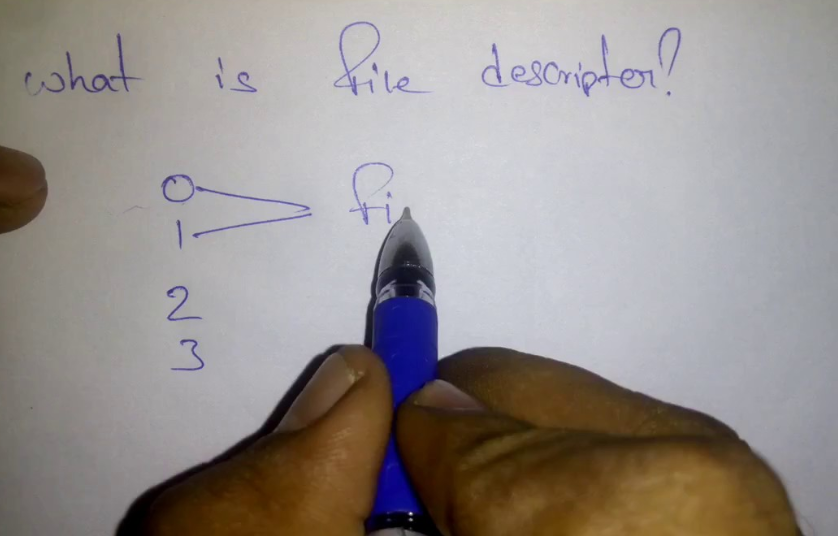 what is file descriptor?
0
1 fi
2
3